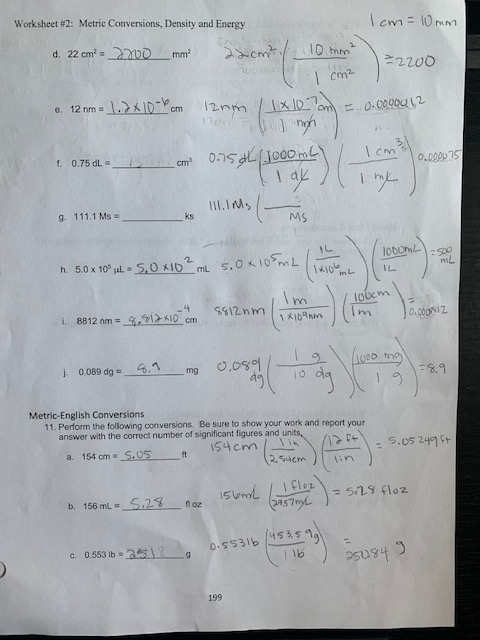 Worksheet #2: Metric Conversions, Density and Energy
1 cm = 10 mm
d. 22 cm² = 2200 mm² 22 cm² ( 10 mm² / 1 cm² ) = 2200
e. 12 nm = 1.2 x 10⁻⁶ cm 12nm ( 1 x 10⁻⁷ cm / 1 nm ) = 0.0000012
f. 0.75 dL = cm³ 0.75 dL ( 1000 mL / 1 dL ) ( 1 cm³ / 1 mL ) 0.000075
g. 111.1 Ms = ks 111.1 Ms ( / Ms
h. 5.0 x 10⁵ µL = 5.0 x 10² mL 5.0 x 10⁵ mL ( 1L / 1x10⁶ mL ) ( 1000mL / 1L ) = 500 mL
i. 8812 nm = 8.812 x 10⁻⁴ cm 8812 nm ( 1 m / 1 x 10⁹ nm ) ( 100cm / 1m ) =
j. 0.089 dg = 8.9 mg 0.089 dg ( 1 g / 10 dg ) ( 1000 mg / 1 g ) = 8.9
Metric-English Conversions
11. Perform the following conversions. Be sure to show your work and report your
answer with the correct number of significant figures and units.
a. 154 cm = 5.05 ft 154 cm ( 1 in / 2.54cm ) ( 12 ft / 1in ) = 5.05249 ft
b. 156 mL = 5.28 fl oz 156mL ( 1 fl oz / 29.57mL ) = 5.28 fl oz
c. 0.553 lb = g 0.553 lb ( 453.59g / 1 lb ) = g
199